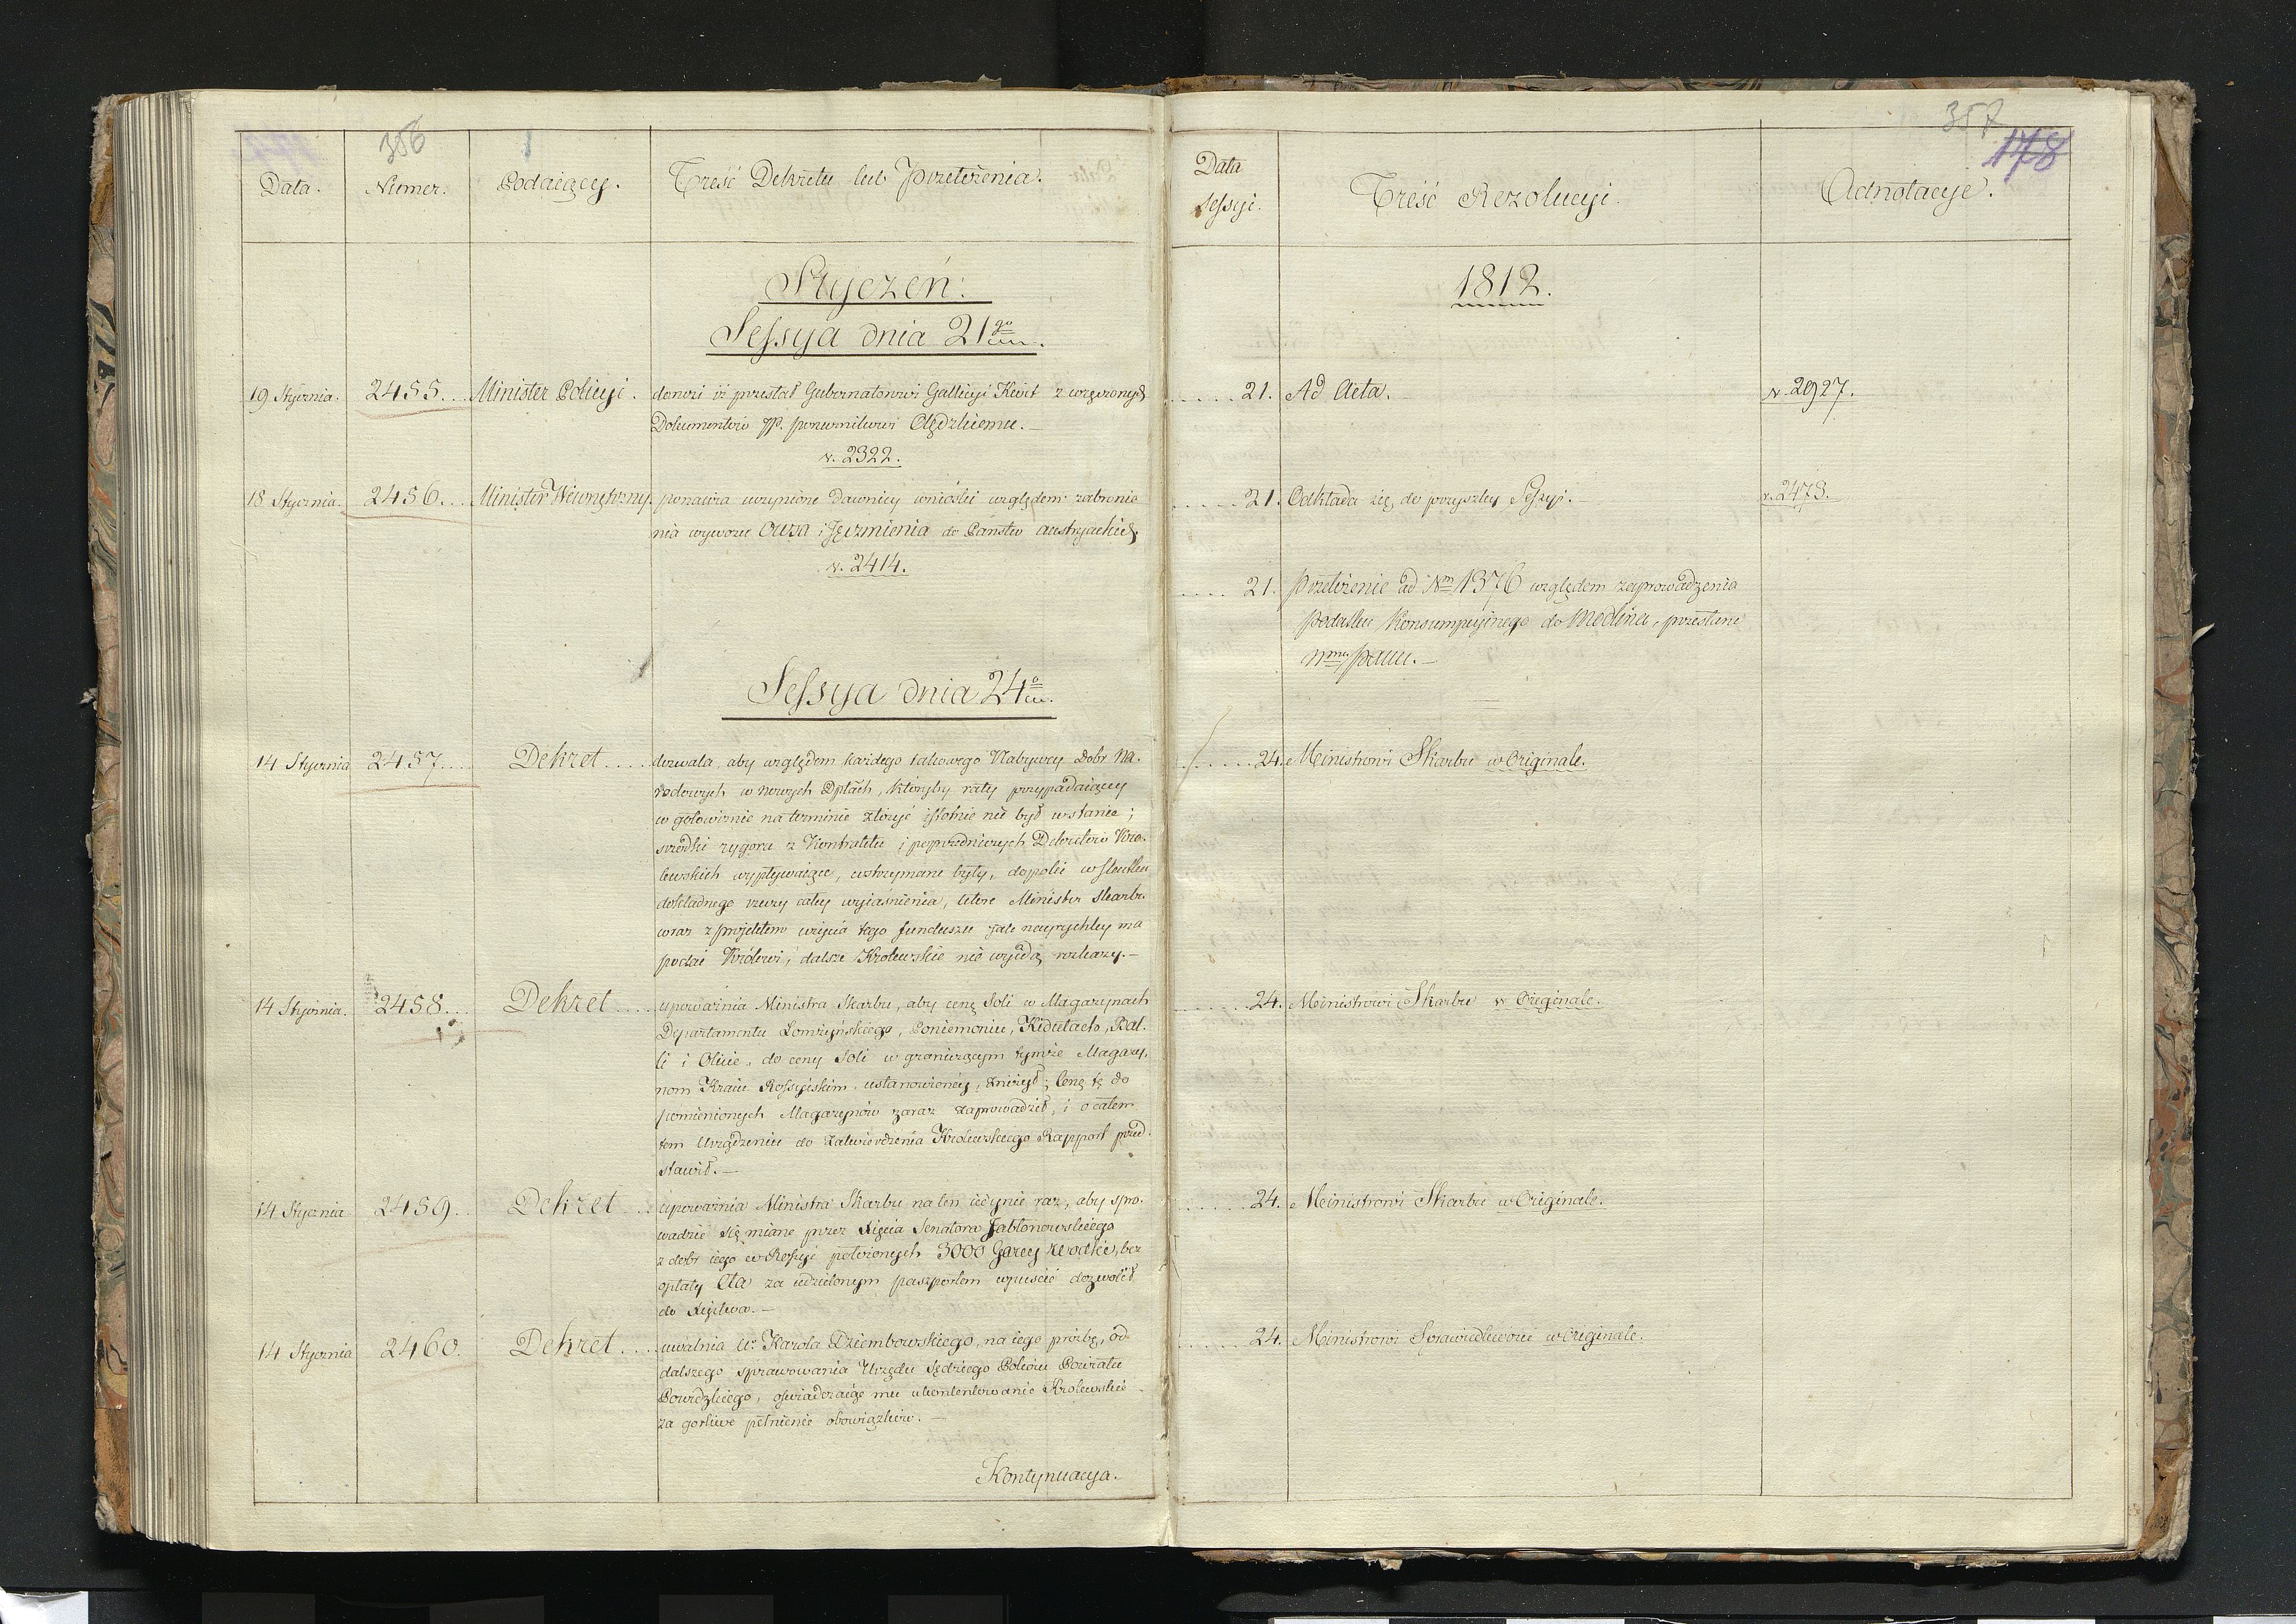 356
Data.
Numer.
Podaiący.
Treść Dekretu lub Przełożenia.
Styczeń.
Sessya dnia 21go
19 Stycznia.
2455...
Minister Policyi.
donosi iż przesłał Gubernatorowi Gallicyi Kwit z wręczonych
Dokumentów JP. porucznikowi Olędzkiemu.—
N. 2322.
18 Stycznia.
2456...
Minister Wewnętrzny.
ponawia uczynione dawniey wnioski względem zabronie
nia wywozu Owsa i Jęczmienia do Państw austryackich.
N. 2414.
Sessya dnia 24o
14 Stycznia
2457...
Dekret....
dozwala, aby względem każdego takowego Nabywcy Dobr Na-
rodowych w nowych Dpttach, któryby raty przypadaiącey
w gotowiznie na terminie złożyć istotnie nie był wstanie;
srzodki rygoru z Kontraktu i poprzedniczych Dekretow Kró-
lewskich wypływaiące, wstrzymane były, dopoki wskutku
dokładnego rzeczy całey wyiaśnienia, które Minister Skarbu
wraz z projektem użycia tego funduszu jak nayrychley ma
podać Królowi, dalsze Krolewskie nie wyidą rozkazy.—
14 Stycznia.
2458...
Dekret....
upoważnia Ministra Skarbu, aby cenę Soli w Magazynach
Departamentu Łomżyńskiego, Poniemoniu, Kidulach, Bal-
li i Olicie, do ceny Soli w graniczącym tymże Magazy-
nom Kraiu Rossyiskim ustanowioney, zniżył; Cenę tę do
pomienionych Magazynów zaraz zaprowadził, i o całem
tem Urządzeniu do zatwierdzenia Krolewskiego Rapport przed-
stawił.—
14 Stycznia
2459..
Dekret...
upoważnia Ministra Skarbu na ten iedynie raz, aby spro-
wadzić się miane przez Xięcia Senatora Jabłonowskiego
z dobr iego w Rossyi położonych 3000 Garcy wodki, bez
opłaty Cła za udzielonym paszportem wpuścić dozwolił
do Xięstwa.—
14 Stycznia
2460.
Dekret....
uwalnia Ur Karola Dziembowskiego, na iego prozbę, od
dalszego sprawowania Urzędu Sędziego Pokoiu Powiatu
Powidzkiego, oświadczaiąc mu ukontentowanie Krolewskie
za gorliwe pełnienie obowiązków.—
Kontynuacya.
357
178
Data
Sessyi.
Treść Rezolucyi.
Adnotacye.
1812.
.....21.
Ad Acta.
N. 2927.
.....21.
Odkłada się do przyszłey Sessyi.
N. 2473.
....21.
Przełożenie ad Nm 1376 względem zaprowadzenia
Podatku Konsumpcyinego do Modlina, przesłane
Nmu Panu.—
......24.
Ministrowi Skarbu w Originale.
......24.
Ministrowi Skarbu w Originale.
......24.
Ministrowi Skarbu w Originale.
......24.
Ministrowi Sprawiedliwości w Originale.